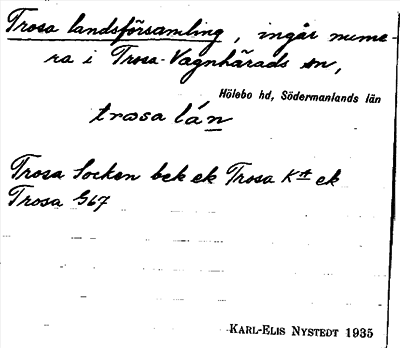 Trosa landsförsamling, ingår nume-
ra i Trosa-Vagnhärads sn,
Hölebo hd, Södermanlands län
trosa lán
Trosa Socken bek ek Trosa Kst ek
Trosa G67
KARL-ELIS NYSTEDT 1935